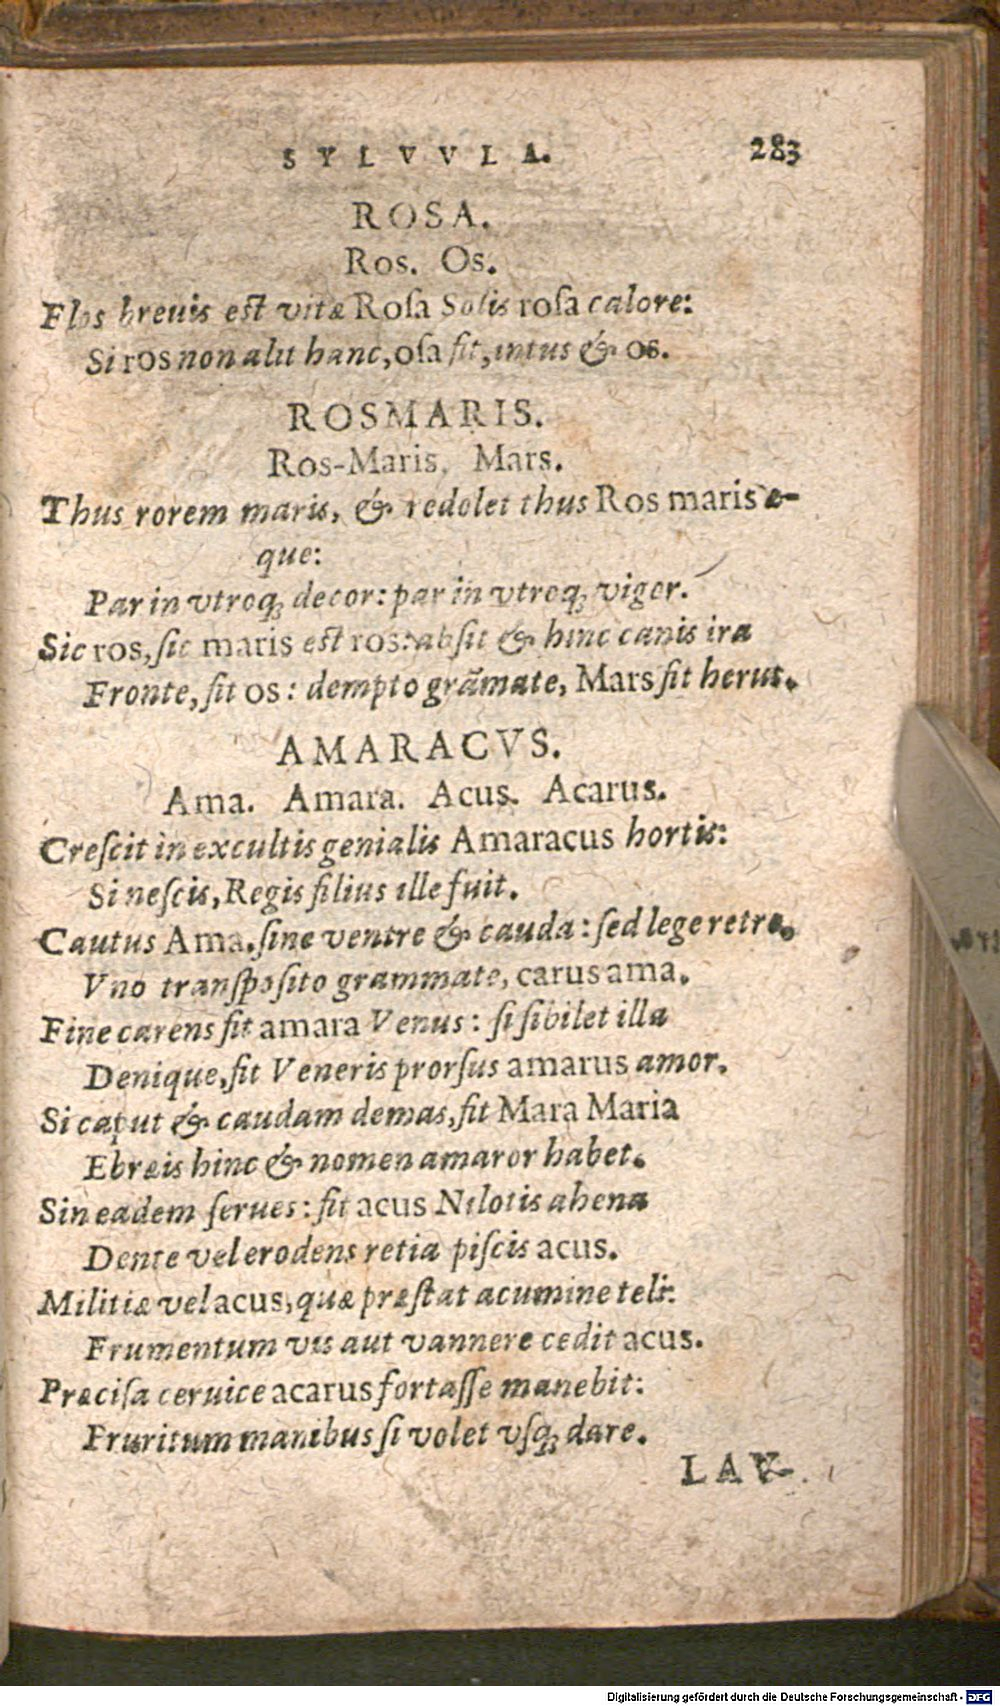 SYLVVLA. 283
ROSA.
Ros. Os.
Flos breuis est vitæ Rosa Solis rosa calore:
Si ros non alit hanc, osa fit, intus & os.
ROSMARIS.
Ros-Maris. Mars.
Thus rorem maris, & redolet thus Ros maris æ-
que:
Par in vtroq; decor: par in vtroq; vigor.
Sic ros, sic maris est ros: absit & hinc canis ira
Fronte, sit os: dempto grãmate, Mars fit herus.
AMARACVS.
Ama. Amara. Acus. Acarus.
Crescit in excultis genialis Amaracus hortis:
Si nescis, Regis filius ille fuit.
Cautus Ama. sine ventre & cauda: sed lege retro.
Vno transposito grammate, carus ama.
Fine carens fit amara Venus: si sibilet illa
Denique, fit Veneris prorsus amarus amor.
Si caput & caudam demas, fit Mara Maria
Ebræis hinc & nomen amaror habet.
Sin eadem serues: fit acus Nilotis ahena
Dente vel erodens retia piscis acus.
Militiæ vel acus, quæ præstat acumine teli:
Frumentum vis aut vannere cedit acus.
Præcisa ceruice acarus fortasse manebit:
Pruritum manibus si volet vsq; dare.
LAV-
Digitalisierung gefördert durch die Deutsche Forschungsgemeinschaft - DFG